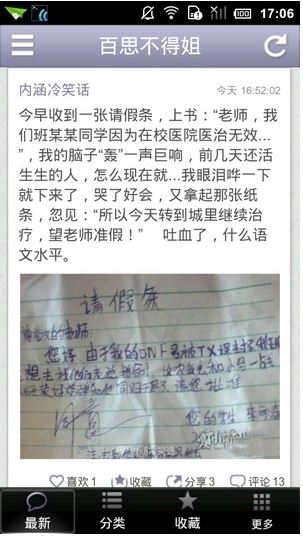 17:06
百思不得姐
内涵冷笑话
今天 16:52:02
今早收到一张请假条，上书：“老师，我
们班某某同学因为在校医院医治无效...
”，我的脑子“轰”一声巨响，前几天还活
生生的人，怎么现在就...我眼泪哗一下
就下来了，哭了好会，又拿起那张纸
条，忽见：“所以今天转到城里继续治
疗，望老师准假！” 吐血了，什么语
文水平。
请假条
您好 由于我的DNF号被TX
您的学生
喜欢 1
收藏
分享 3
评论 13
最新
分类
收藏
更多